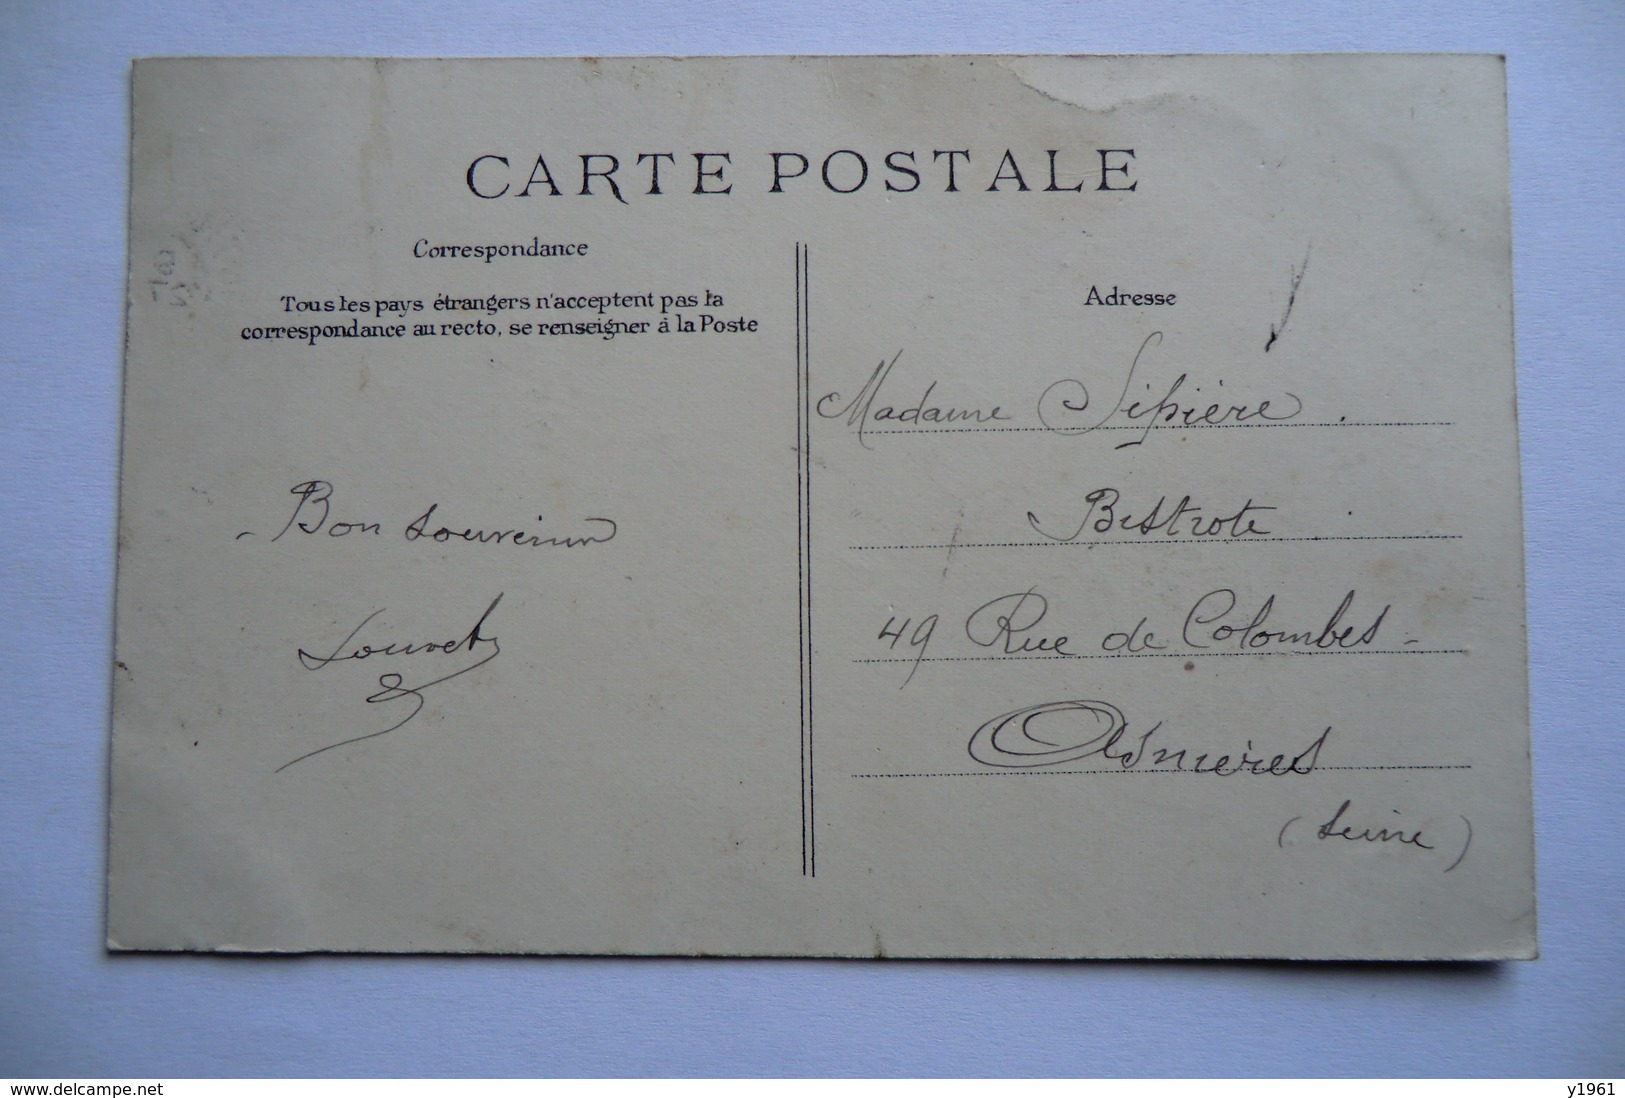 CARTE POSTALE
Correspondance
Tous les pays étrangers n'acceptent pas la
correspondance au recto, se renseigner à la Poste
- Bon Souvenir
Louvet
Adresse
Madame Sipière.
Bistrote
49 Rue de Colombes -
Asnières
(Seine)
www.delcampe.net
y1961